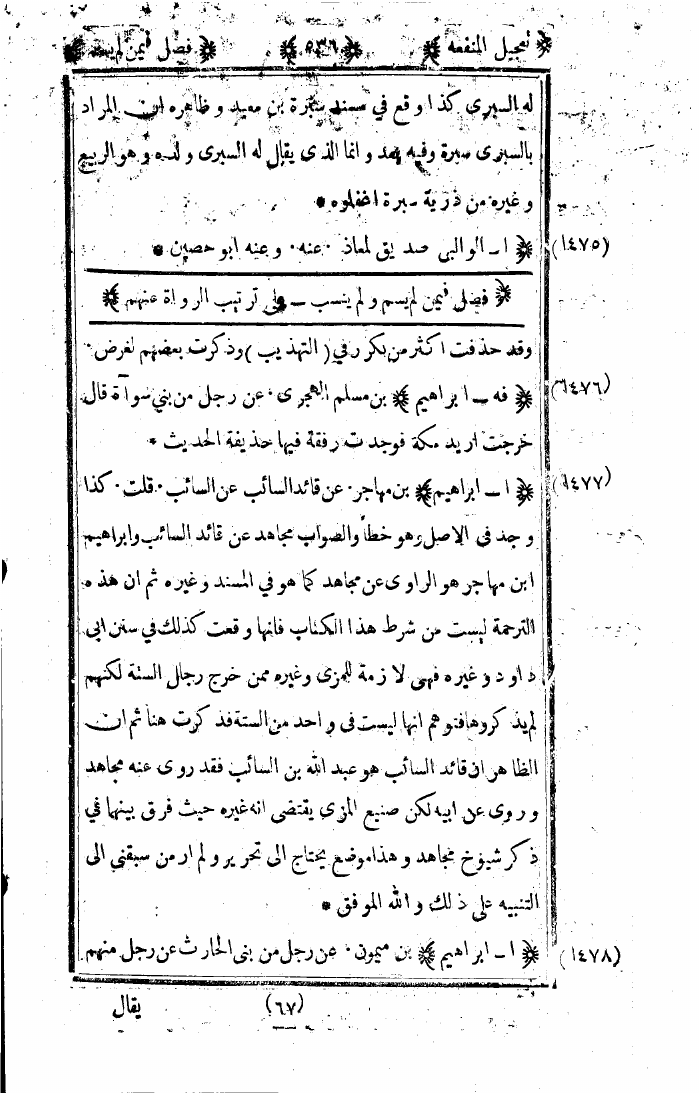 ﴿ تعجيل المنفعة ﴾ ﴿ ٥٣٦ ﴾ ﴿ فصل فيمن لم يسم ﴾
له السبرى كذا وقع في مسند سبرة بن معبد وظاهره ان المراد
بالسبرى سبرة وفيه بعد وانما الذى يقال له السبرى ولده وهو الربيع
وغيره من ذرية سبرة اغفلوه *
(١٤٧٥) ﴿ ا ـ الوالبى صديق لمعاذ ٠ عنه ٠ وعنه ابو حصين *
﴿ فصل فيمن لم يسم ولم ينسب ـ على ترتيب الرواة عنهم ﴾
وقد حذفت اكثر من بكر رفي ( التهذيب ) وذكرت بعضهم لغرض ٠
(١٤٧٦) ﴿ فه ـ ابراهيم ﴾ بن مسلم الهجرى ٠ عن رجل من بني سوآة قال
خرجت اريد مكة فوجدت رفقة فيها حذيفة الحديث *
(١٤٧٧) ﴿ ا ـ ابراهيم ﴾ بن مهاجر ٠ عن قائد السائب عن السائب ٠ قلت ٠ كذا
وجد فى الاصل وهو خطأ والصواب مجاهد عن قائد السائب وابراهيم
ابن مهاجر هو الراوى عن مجاهد كما هو في المسند وغيره ثم ان هذه
الترجمة ليست من شرط هذا الكتاب فانها وقعت كذلك في سنن ابى
داود وغيره فهى لازمة للمزى وغيره ممن خرج رجال الستة لكنهم
لم يذكروها فتوهم انها ليست فى واحد من الستة فذكرت هنا ثم ان
الظاهر ان قائد السائب هو عبد الله بن السائب فقد روى عنه مجاهد
وروى عن ابيه لكن صنيع المزى يقتضى انه غيره حيث فرق بينها في
ذكر شيوخ مجاهد وهذا موضع يحتاج الى تحرير ولم ار من سبقني الى
التنبيه على ذلك والله الموفق *
(١٤٧٨) ﴿ ا ـ ابراهيم ﴾ بن ميمون ٠ عن رجل من بنى الحارث عن رجل منهم
(٦٧) يقال